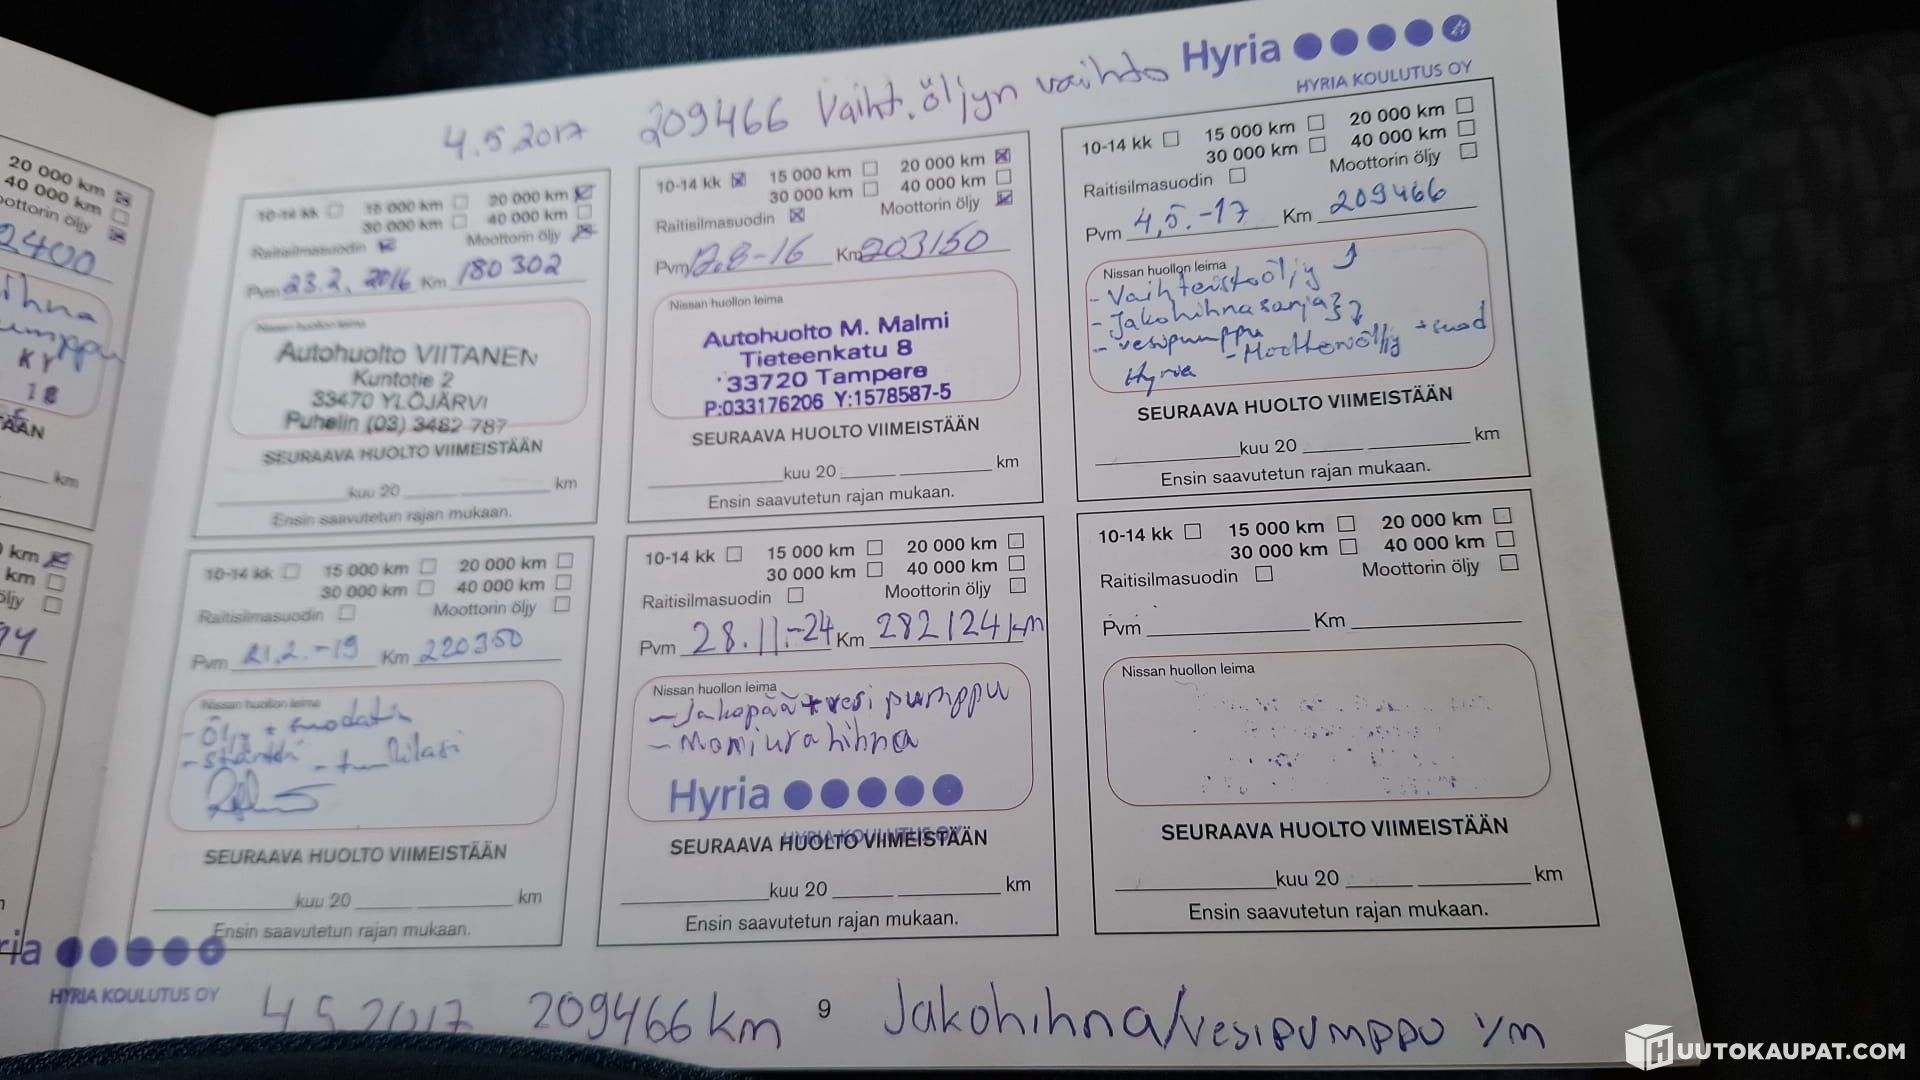 Hyria
HYRIA KOULUTUS OY
4.5.2017 209466 Vaiht.öljyn vaihto
20 000 km
40 000 km
Moottorin öljy
2400
KY
18
km
km
km
HYRIA KOULUTUS OY
10-14 kk 15 000 km 20 000 km
30 000 km 40 000 km
Raitisilmasuodin Moottorin öljy
Pvm 23.2.2016 Km 180302
Nissan huollon leima
Autohuolto VIITANEN
Kuntotie 2
33470 YLÖJÄRVI
Puhelin (03) 3482 787
SEURAAVA HUOLTO VIIMEISTÄÄN
kuu 20 km
Ensin saavutetun rajan mukaan.
10-14 kk 15 000 km 20 000 km
30 000 km 40 000 km
Raitisilmasuodin Moottorin öljy
Pvm 12.8-16 Km 203150
Nissan huollon leima
Autohuolto M. Malmi
Tieteenkatu 8
33720 Tampere
P:033176206 Y:1578587-5
SEURAAVA HUOLTO VIIMEISTÄÄN
kuu 20 km
Ensin saavutetun rajan mukaan.
10-14 kk 15 000 km 20 000 km
30 000 km 40 000 km
Raitisilmasuodin Moottorin öljy
Pvm 4.5.-17 Km 209466
Nissan huollon leima
- Vaihteistoöljy
- Jakohihnasarja
- vesipumppu
Hyria - Moottoriöljy + suod
SEURAAVA HUOLTO VIIMEISTÄÄN
kuu 20 km
Ensin saavutetun rajan mukaan.
10-14 kk 15 000 km 20 000 km
30 000 km 40 000 km
Raitisilmasuodin Moottorin öljy
Pvm 21.2.-19 Km 220350
Nissan huollon leima
- Öljy + suodatin
SEURAAVA HUOLTO VIIMEISTÄÄN
kuu 20 km
Ensin saavutetun rajan mukaan.
10-14 kk 15 000 km 20 000 km
30 000 km 40 000 km
Raitisilmasuodin Moottorin öljy
Pvm 28.11.-24 Km 282124 km
Nissan huollon leima
- Jakopää + vesipumppu
- Moniurahihna
Hyria
HYRIA KOULUTUS OY
SEURAAVA HUOLTO VIIMEISTÄÄN
kuu 20 km
Ensin saavutetun rajan mukaan.
10-14 kk 15 000 km 20 000 km
30 000 km 40 000 km
Raitisilmasuodin Moottorin öljy
Pvm Km
Nissan huollon leima
SEURAAVA HUOLTO VIIMEISTÄÄN
kuu 20 km
Ensin saavutetun rajan mukaan.
4.5.2017 209466 km 9 Jakohihna/vesipumppu v/m
HUUTOKAUPAT.COM